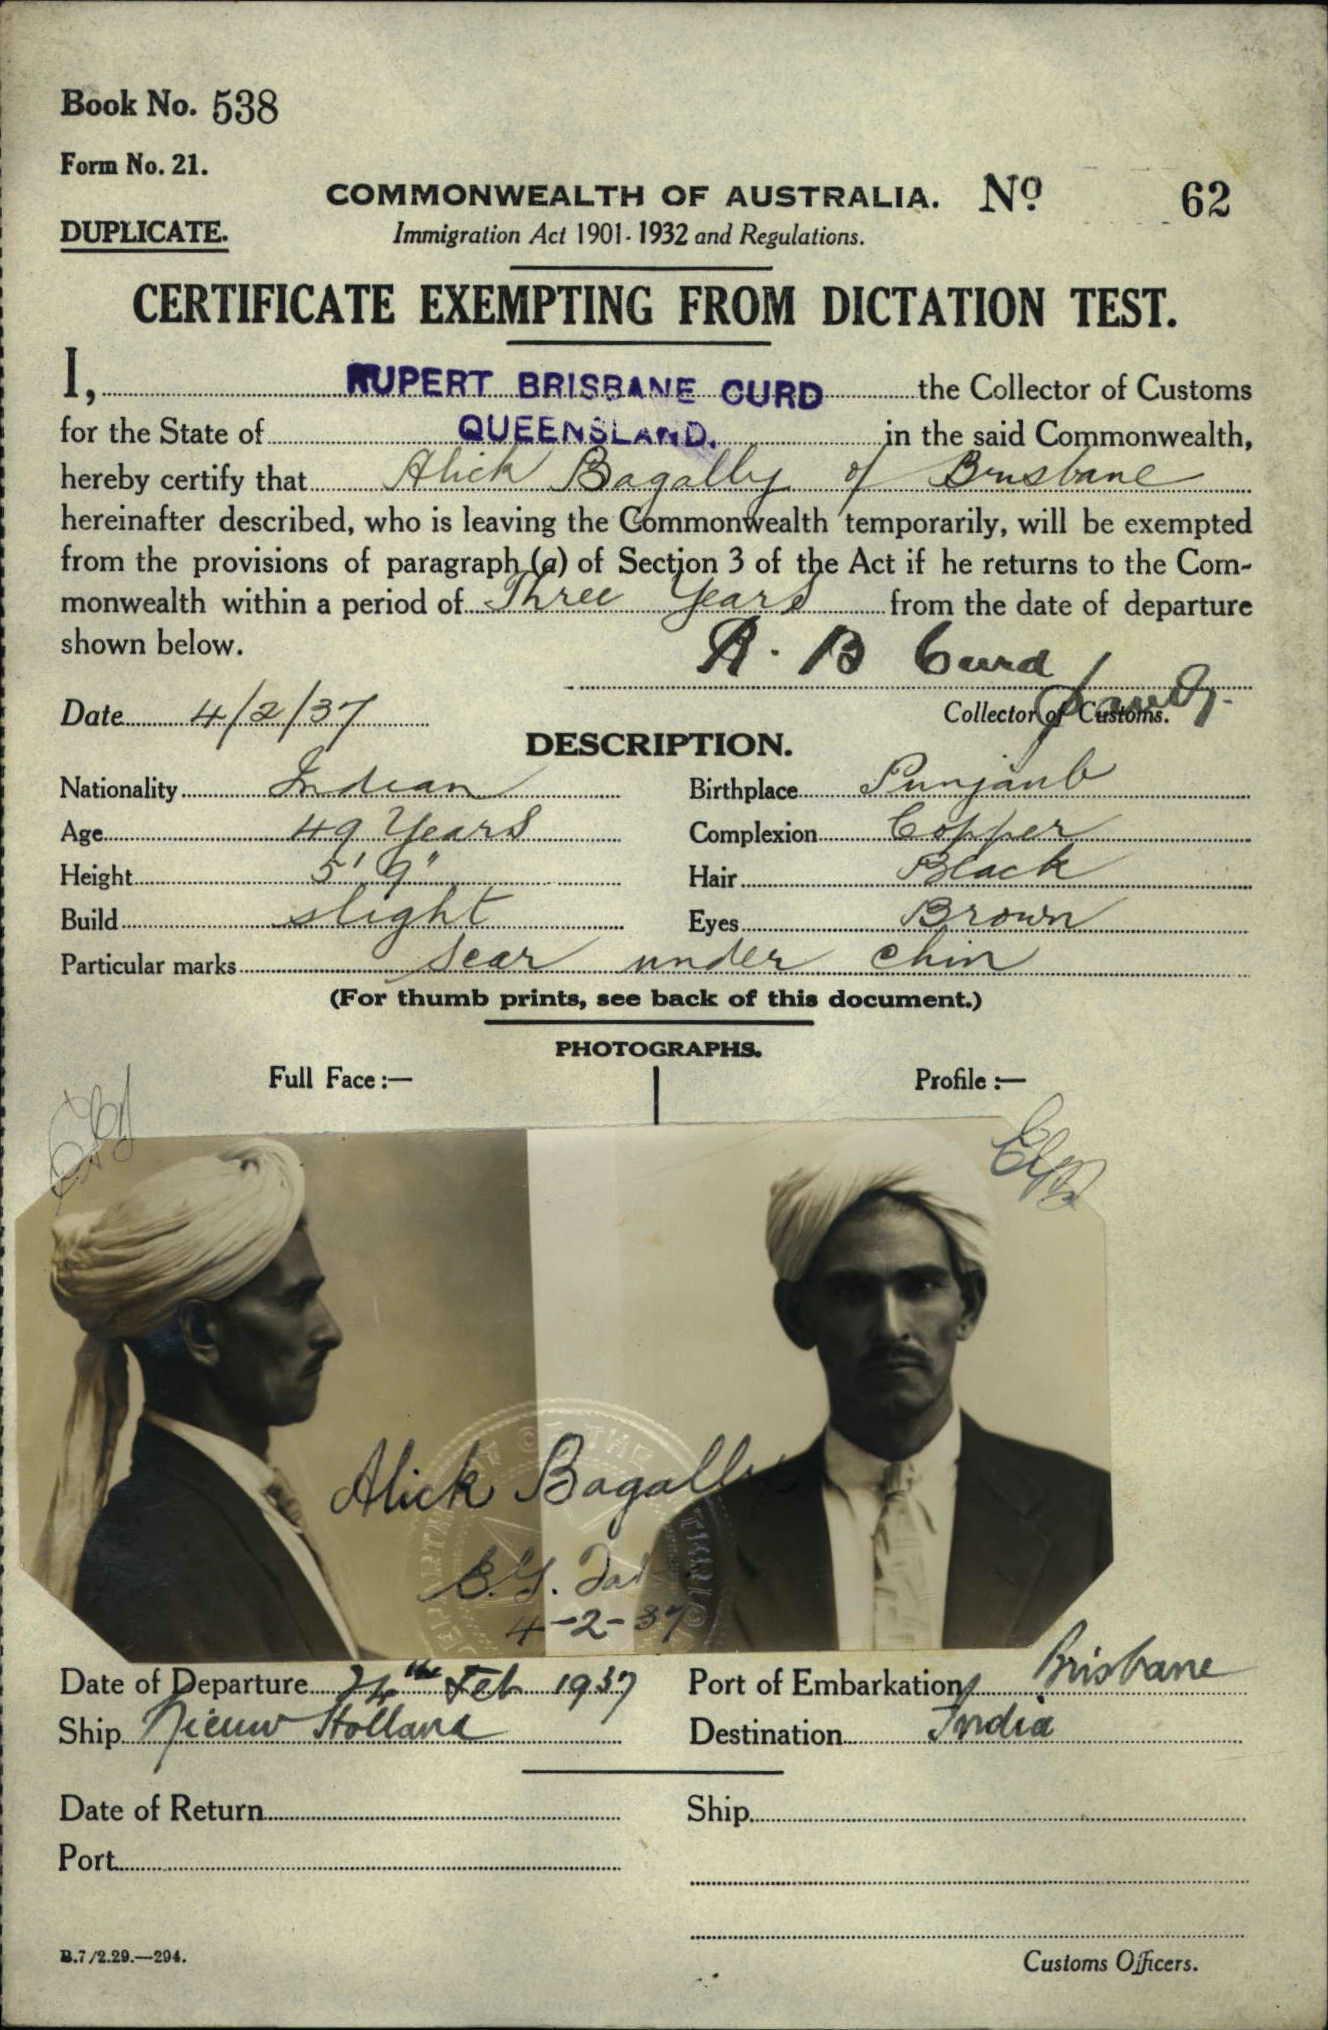 Book No. 538
Form No. 21.
COMMONWEALTH OF AUSTRALIA. No 62
DUPLICATE.
Immigration Act 1901-1932 and Regulations.
CERTIFICATE EXEMPTING FROM DICTATION TEST.
I, RUPERT BRISBANE CURD the Collector of Customs
for the State of QUEENSLAND. in the said Commonwealth,
hereby certify that Alick Bagally of Brisbane
hereinafter described, who is leaving the Commonwealth temporarily, will be exempted
from the provisions of paragraph (a) of Section 3 of the Act if he returns to the Com-
monwealth within a period of Three Years from the date of departure
shown below.
R. B Curd
Date 4/2/37
Collector of Customs.
DESCRIPTION.
Nationality Indian Birthplace Punjaub
Age 49 Years Complexion Copper
Height 5' 9" Hair Black
Build slight Eyes Brown
Particular marks Scar under chin
(For thumb prints, see back of this document.)
PHOTOGRAPHS.
Full Face:— Profile:—
Alick Bagally
4-2-37
Date of Departure 24th Feb 1937 Port of Embarkation Brisbane
Ship Nieuw Holland Destination India
Date of Return Ship
Port
B.7/2.29.—294.
Customs Officers.